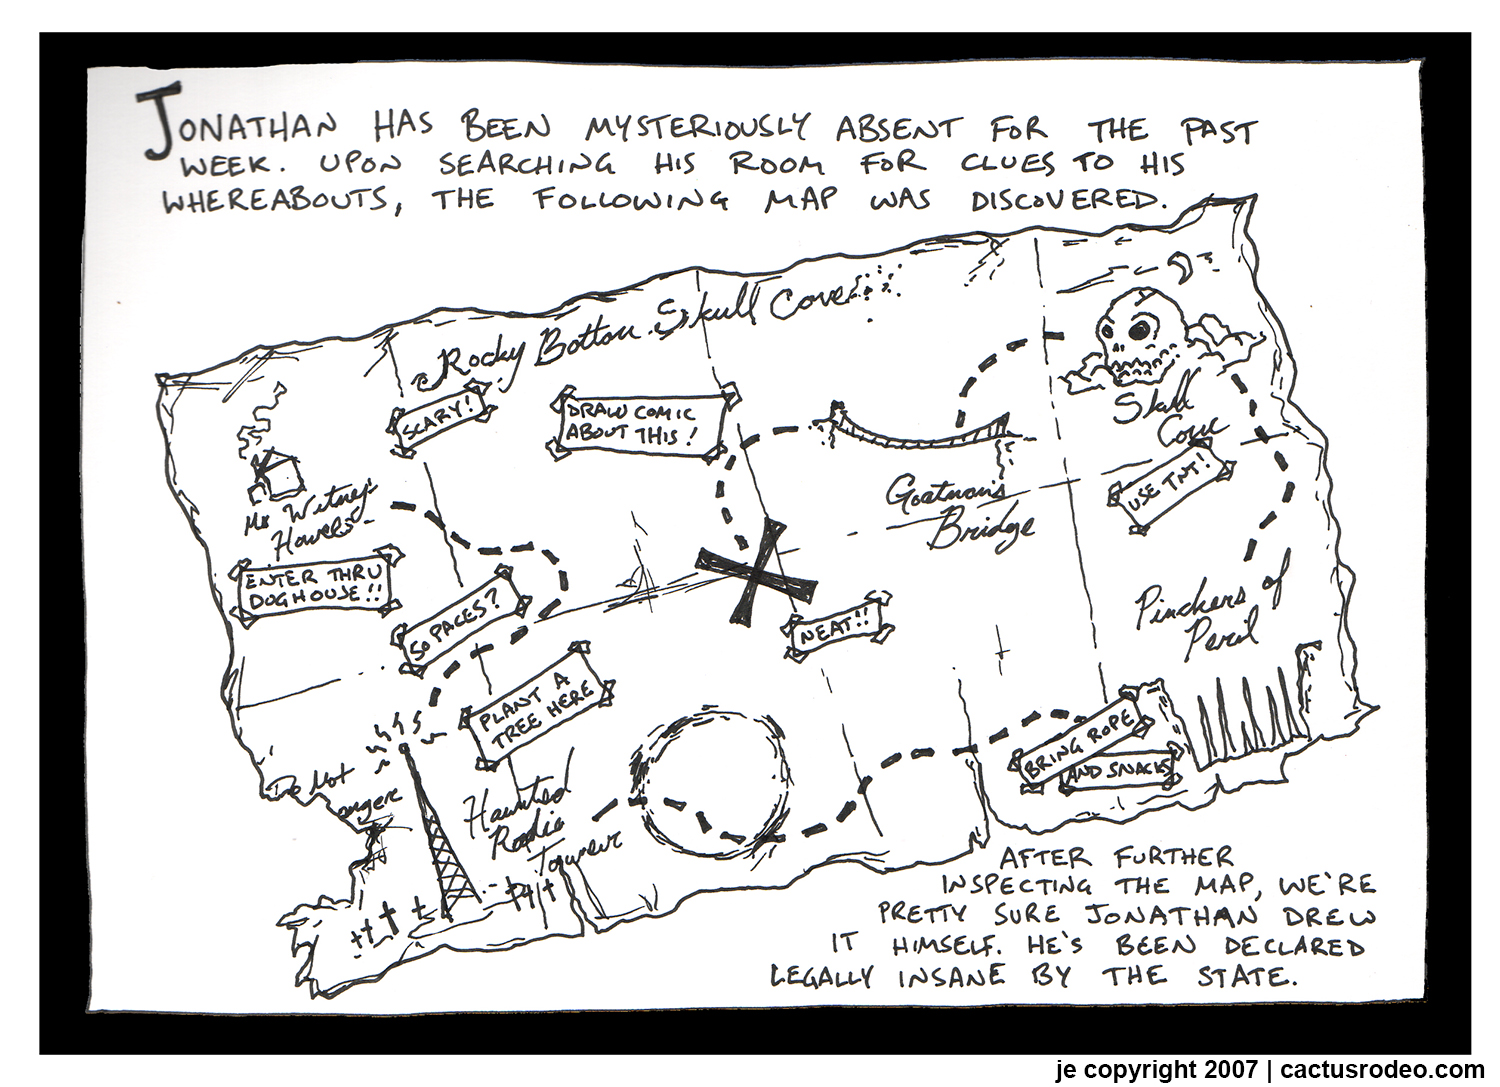 JONATHAN HAS BEEN MYSTERIOUSLY ABSENT FOR THE PAST
WEEK. UPON SEARCHING HIS ROOM FOR CLUES TO HIS
WHEREABOUTS, THE FOLLOWING MAP WAS DISCOVERED.
Rocky Bottom Skull Cove
SCARY!
DRAW COMIC
ABOUT THIS!
Skull
Cove
USE TNT!
Goatman's
Bridge
Howels
ENTER THRU
DOGHOUSE!!
50 PACES?
NEAT!!
Pinchers of
Peril
PLANT A
TREE HERE
BRING ROPE
AND SNACKS
Do Not
Haunted
Radio
Tower
AFTER FURTHER
INSPECTING THE MAP, WE'RE
PRETTY SURE JONATHAN DREW
IT HIMSELF. HE'S BEEN DECLARED
LEGALLY INSANE BY THE STATE.
je copyright 2007 | cactusrodeo.com